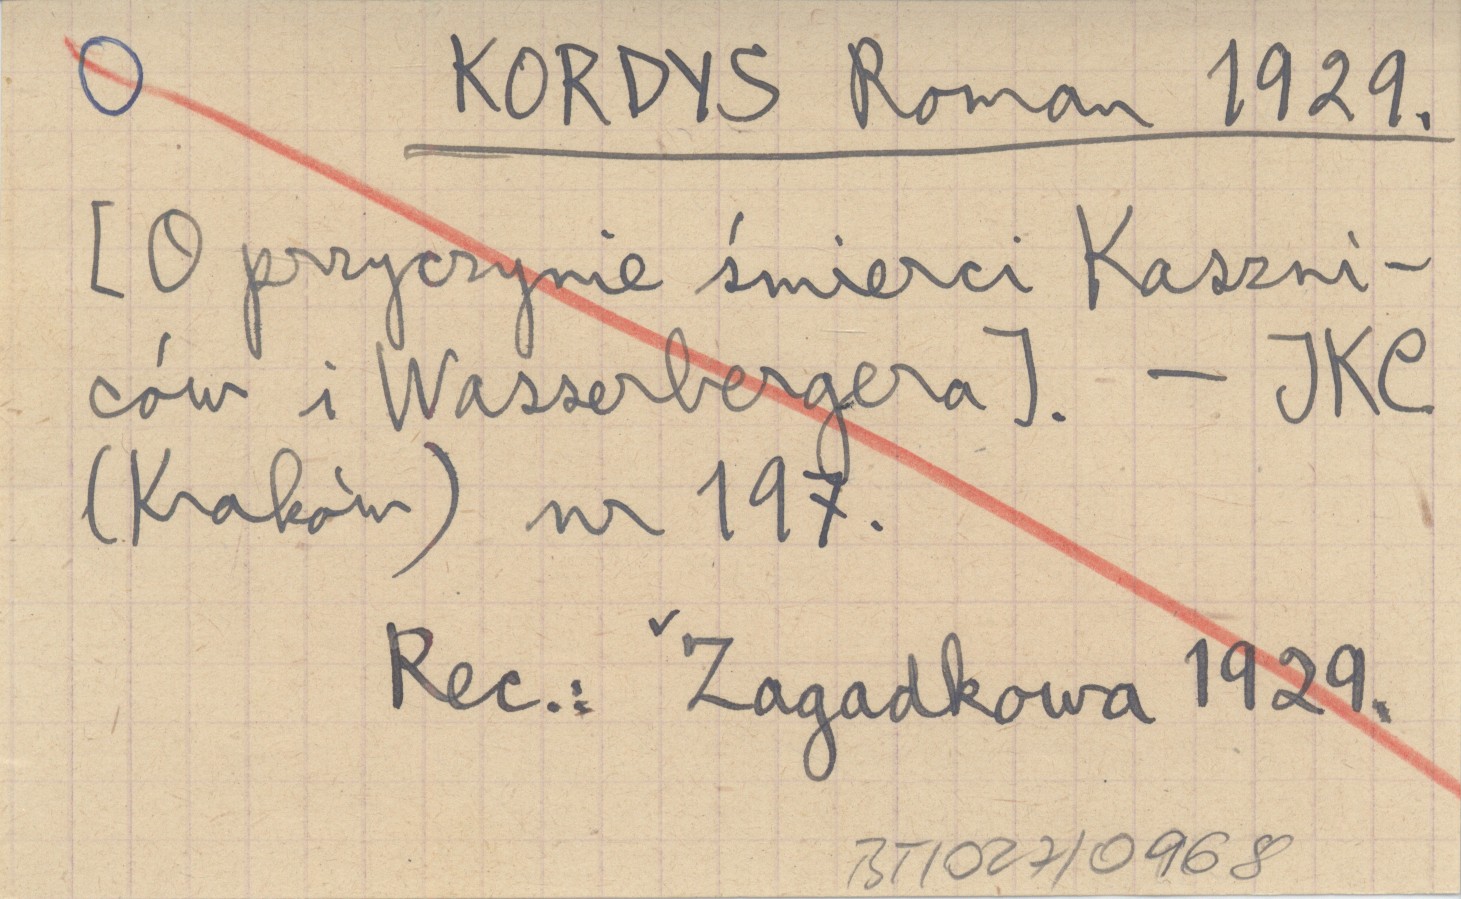 O KORDYS Roman 1929.
[O przyczynie śmierci Kaszni-
ców i Wasserbergera]. — JKC
(Kraków) nr 197.
Rec.: ✓Zagadkowa 1929.
BT/027/0968